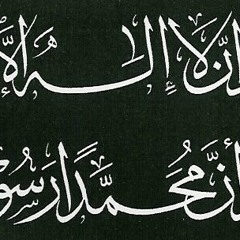 أن لا إله إلا
أنَّ محمدًا رسو